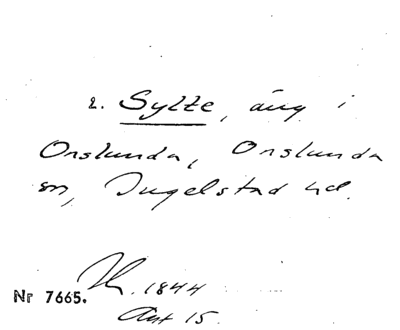 2. Sylte, äng i
Onslunda, Onslunda
sn, Ingelstad hd.
1844
Nr 7665.
Akt 15.